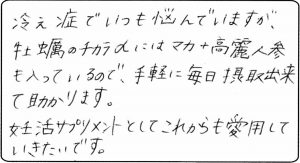 冷え症でいつも悩んでいますが、
牡蠣のチカラαにはマカ+高麗人参
も入っているので、手軽に毎日摂取出来
て助かります。
妊活サプリメントとしてこれからも愛用して
いきたいです。